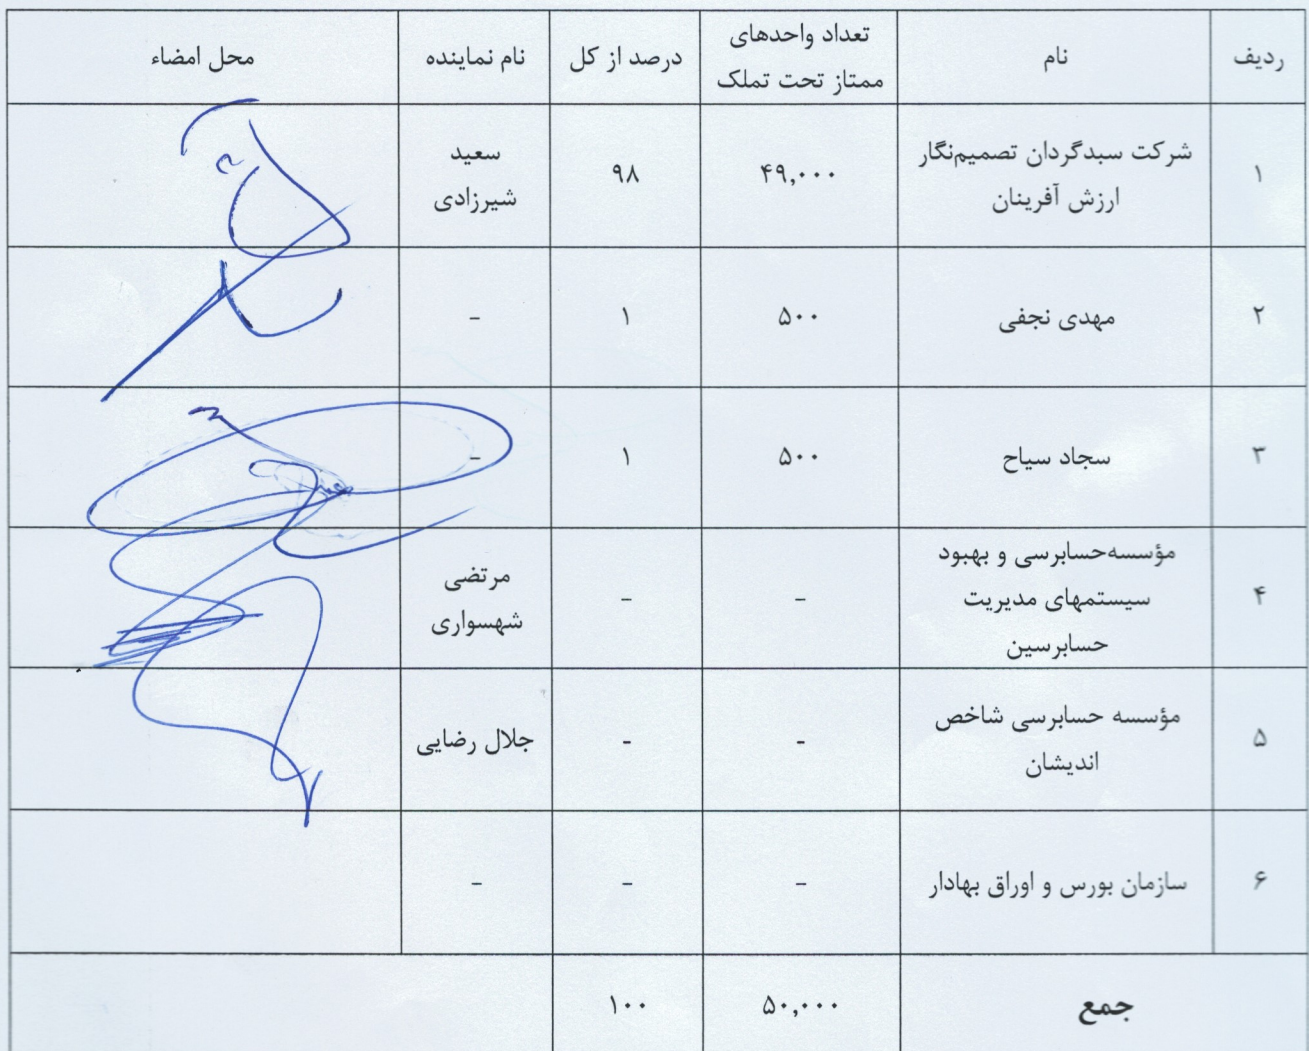 ردیف
نام
تعداد واحدهای
ممتاز تحت تملک
درصد از کل
نام نماینده
محل امضاء
۱
شرکت سبدگردان تصمیم‌نگار
ارزش آفرینان
۴۹,۰۰۰
۹۸
سعید
شیرزادی
۲
مهدی نجفی
۵۰۰
۱
-
۳
سجاد سیاح
۵۰۰
۱
-
۴
مؤسسه‌حسابرسی و بهبود
سیستمهای مدیریت
حسابرسین
-
-
مرتضی
شهسواری
۵
مؤسسه حسابرسی شاخص
اندیشان
-
-
جلال رضایی
۶
سازمان بورس و اوراق بهادار
-
-
-
جمع
۵۰,۰۰۰
۱۰۰